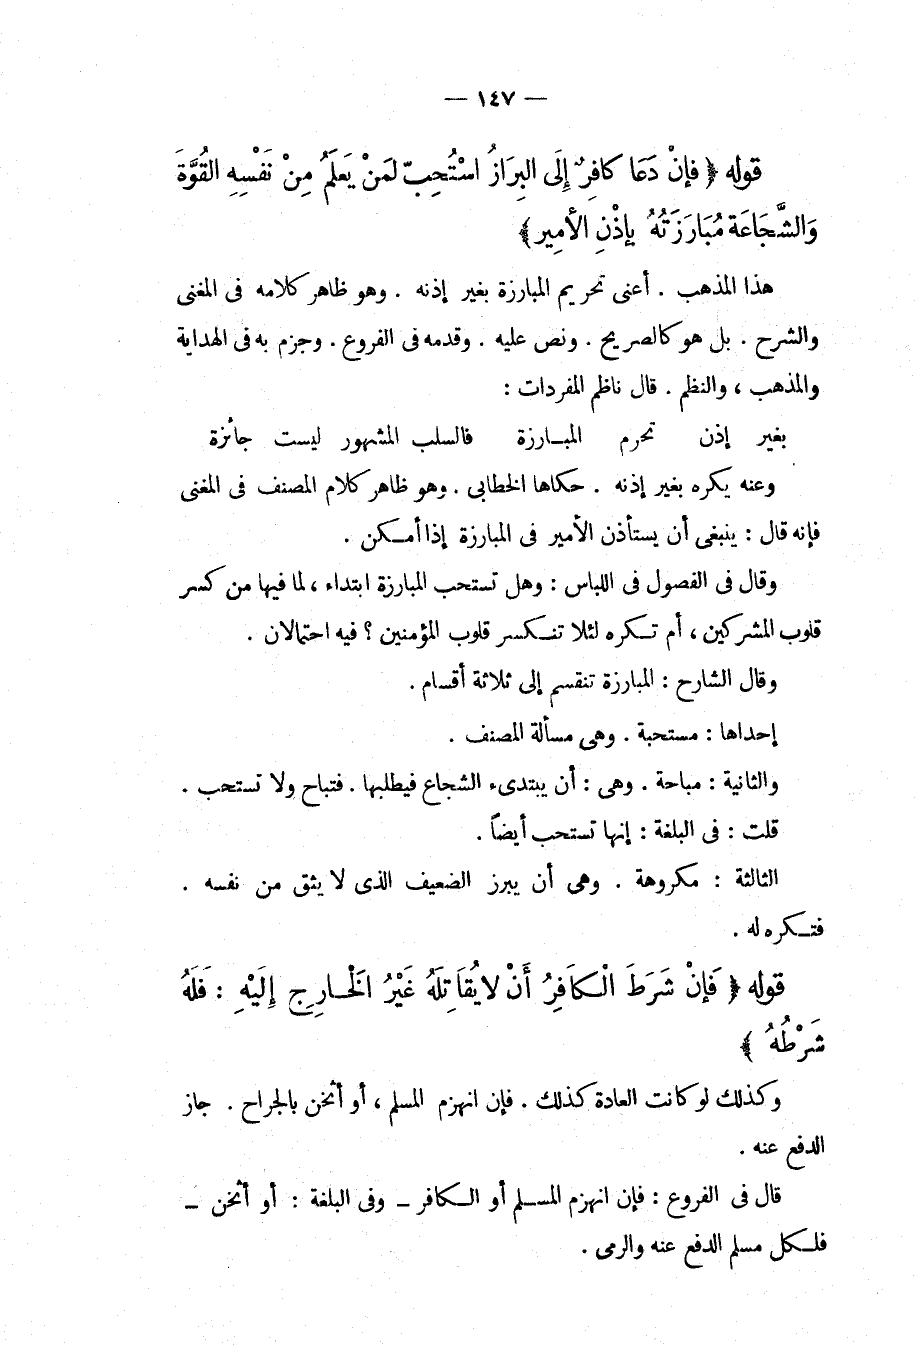 — ١٤٧ —
قوله ﴿ فإنْ دَعَا كافِرٌ إِلَى البِرَازُ اسْتُحِبّ لمَنْ يَعلَمُ مِنْ نَفْسِهِ القُوَّةَ
وَالشَّجَاعَة مُبَارَزَتُهُ بإذْنِ الأمِيرِ ﴾
هذا المذهب . أعنى تحريم المبارزة بغير إذنه . وهو ظاهر كلامه فى المغنى
والشرح . بل هو كالصريح . ونص عليه . وقدمه فى الفروع . وجزم به فى الهداية
والمذهب ، والنظم . قال ناظم المفردات :
بغير إذن تحرم المبـارزة فالسلب المشهور ليست جائزة
وعنه يكره بغير إذنه . حكاها الخطابى . وهو ظاهر كلام المصنف فى المغنى
فإنه قال : ينبغى أن يستأذن الأمير فى المبارزة إذا أمـكن .
وقال فى الفصول فى اللباس : وهل تستحب المبارزة ابتداء ، لما فيها من كسر
قلوب المشركين ، أم تـكره لئلا تنـكسر قلوب المؤمنين ؟ فيه احتمالان .
وقال الشارح : المبارزة تنقسم إلى ثلاثة أقسام .
إحداها : مستحبة . وهى مسألة المصنف .
والثانية : مباحة . وهى : أن يبتدىء الشجاع فيطلبها . فتباح ولا تستحب .
قلت : فى البلغة : إنها تستحب أيضاً .
الثالثة : مكروهة . وهى أن يبرز الضعيف الذى لا يثق من نفسه .
فتـكره له .
قوله ﴿ فَإنْ شَرَطَ الْـكَافِرُ أَنْ لا يُقَاتِلَهُ غَيْرُ الْخَـارِجِ إِلَيْهِ : فَلَهُ
شَرْطُهُ ﴾
وكذلك لو كانت العادة كذلك . فإن انهزم المسلم ، أو أثخن بالجراح . جاز
الدفع عنه .
قال فى الفروع : فإن انهزم المسـلم أو الـكافر ـ وفى البلغة : أو أثخن ـ
فلـكل مسلم الدفع عنه والرمى .